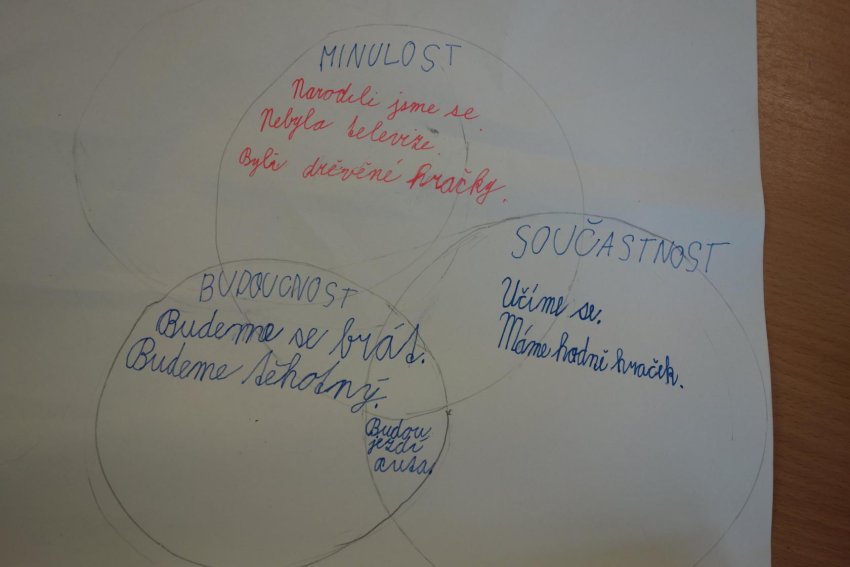 MINULOST
Narodili jsme se.
Nebyla televize.
Byli dřěvěné hračky.
SOUČASTNOST
Učíme se.
Máme hodně hraček.
BUDOUCNOST
Budeme se brát.
Budeme těhotný.
Budou
jezdí
auta.